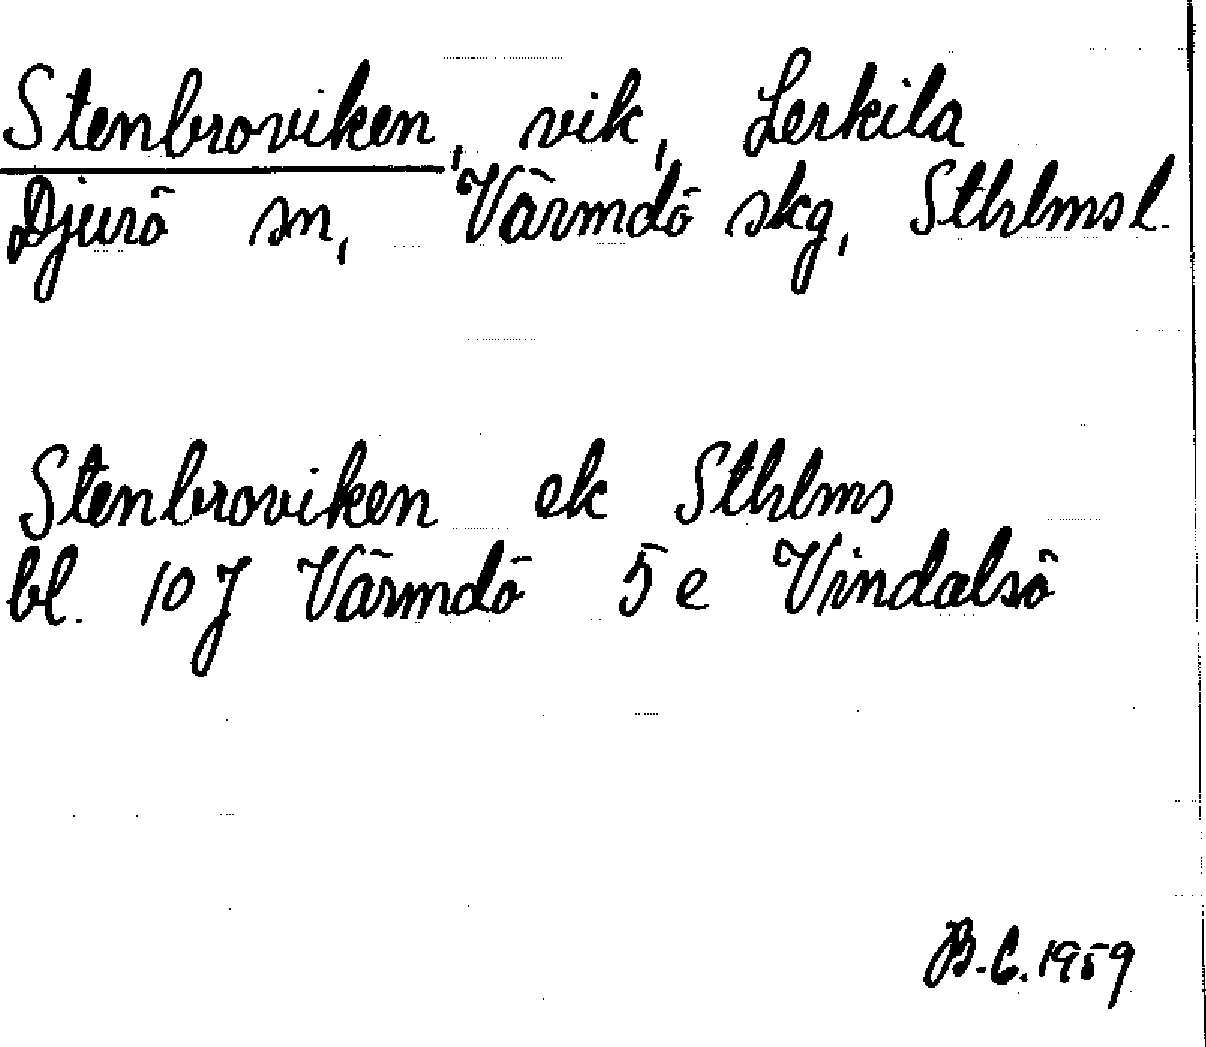 Stenbroviken, vik, Lerkila
Djurö sn, Värmdö skg, Sthlms l.
Stenbroviken ek Sthlms
bl. 10J Värmdö 5e Vindalsö
B.C. 1959